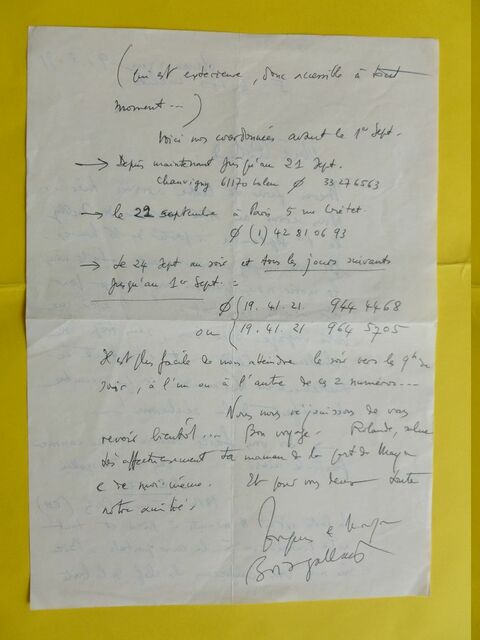 (qui est extérieure, donc accessible à tout
moment...)
Voici nos coordonnées avant le 1er Sept.
→ Depuis maintenant jusqu'au 21 Sept.
Chauvigny 61170 Ø 33 27 65 63
→ le 22 septembre à Paris 5 rue Crétet.
Ø (1) 42 81 06 93
→ Le 24 Sept au soir et tous les jours suivants
jusqu'au 1er Sept. =
Ø (19. 41. 21. 944 4468
ou (19. 41. 21 964 5705
Il est plus facile de nous atteindre le soir vers le 9h du
soir, à l'un ou à l'autre de ces 2 numéros...
Nous nous réjouissons de vous
revoir bientôt... Bon voyage. Rolande, salue
très affectueusement ta maman de la part de
e de moi-même. Et pour vos deux toute
notre amitié.
Jacques e